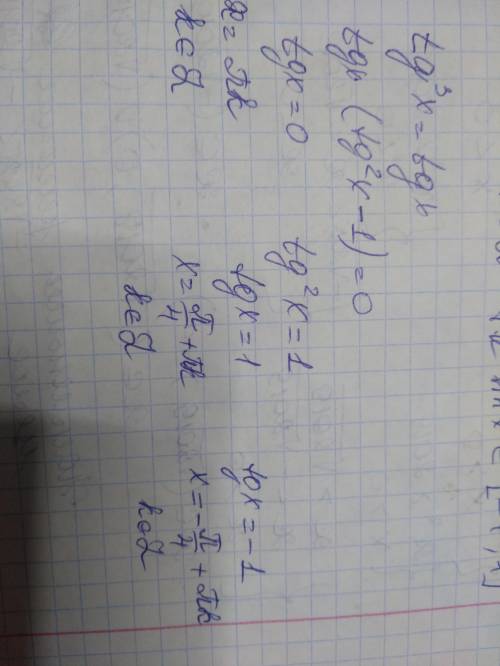 tg³x = tgx
tgx (tg²x - 1) = 0
tgx = 0 tg²x = 1
tgx = 1 tgx = -1
x = πk x = π/4 + πk x = -π/4 + πk
k∈Z k∈Z k∈Z